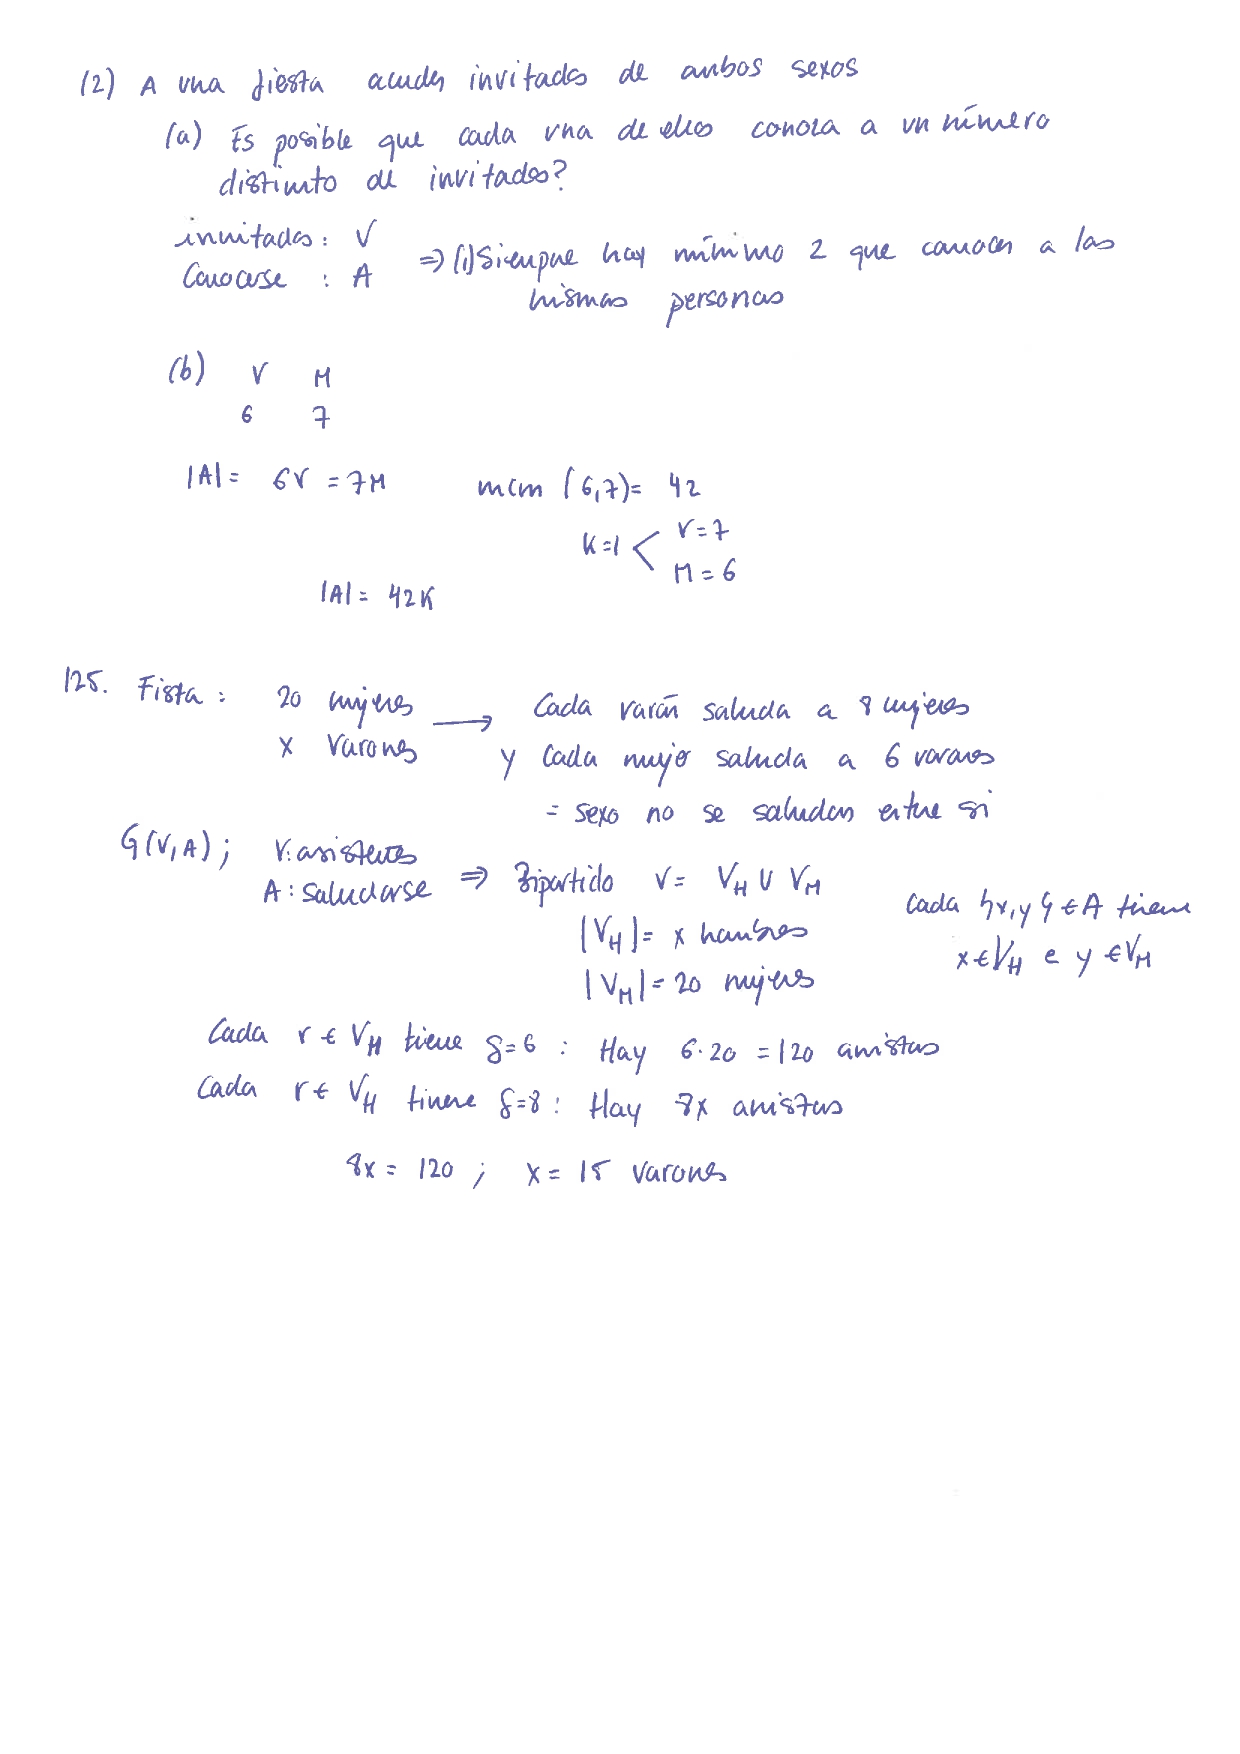 (2) A una fiesta acuden invitados de ambos sexos
(a) Es posible que cada una de ellos conozca a un número
distinto de invitados?
invitados: V
Conocerse : A
⇒ (1) Siempre hay mínimo 2 que conocen a las
mismas personas
(b) V M
6 7
|A| = 6V = 7M mcm (6,7) = 42
K=1 < V=7
M=6
|A| = 42K
125. Fista : 20 mujeres → Cada varón saluda a 8 mujeres
x varones y cada mujer saluda a 6 varones
= sexo no se saludan entre si
G(V,A); V: asistentes
A: saludarse ⇒ Bipartido V = V_H ∪ V_M
|V_H| = x hombres
|V_M| = 20 mujeres
Cada {x,y} ∈ A tiene
x ∈ V_H e y ∈ V_M
Cada r ∈ V_H tiene δ=6 : Hay 6·20 = 120 aristas
Cada r ∈ V_H tiene δ=8 : Hay 8x aristas
8x = 120 ; x = 15 varones